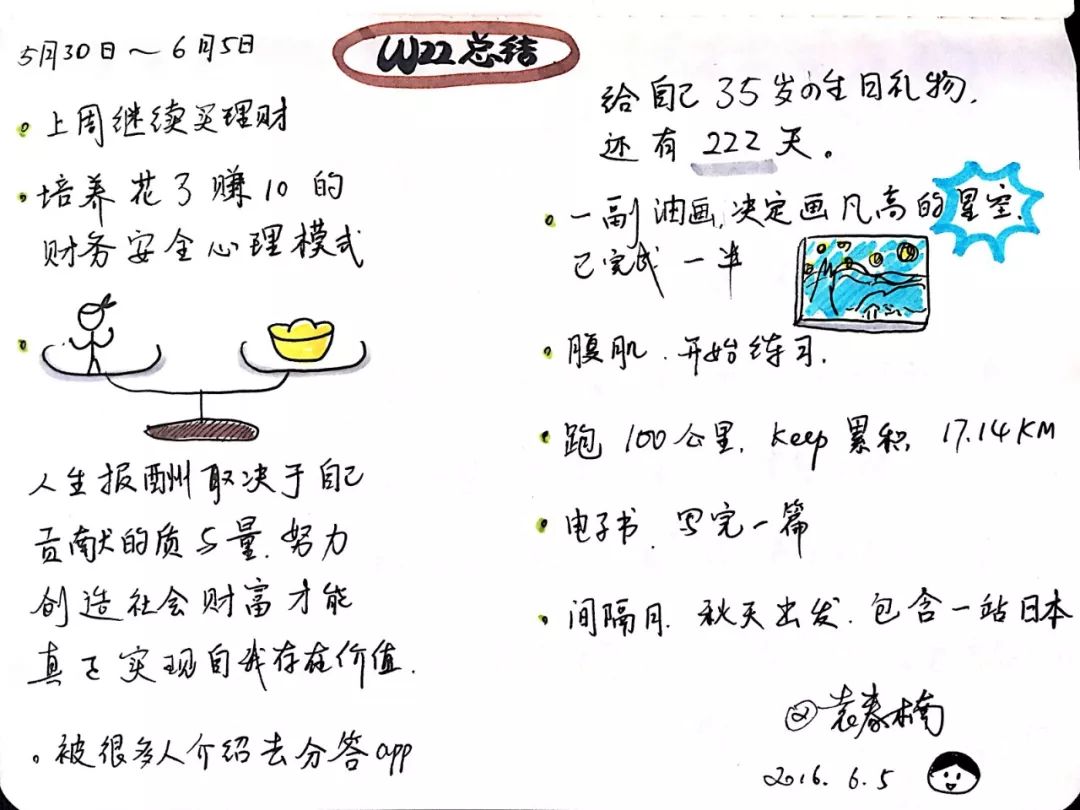 5月30日～6月5日
W22总结
上周继续买理财
培养花了赚10的
财务安全心理模式
人生报酬取决于自己
贡献的质与量.努力
创造社会财富才能
真正实现自我存在价值.
被很多人介绍去分答app
给自己35岁の生日礼物.
还有222天。
一副油画,决定画凡高的星空.
已完成一半
腹肌.开始练习.
跑100公里,Keep累积,17.14KM
电子书.写完一篇
间隔月.秋天出发.包含一站日本
@袁春楠
2016.6.5